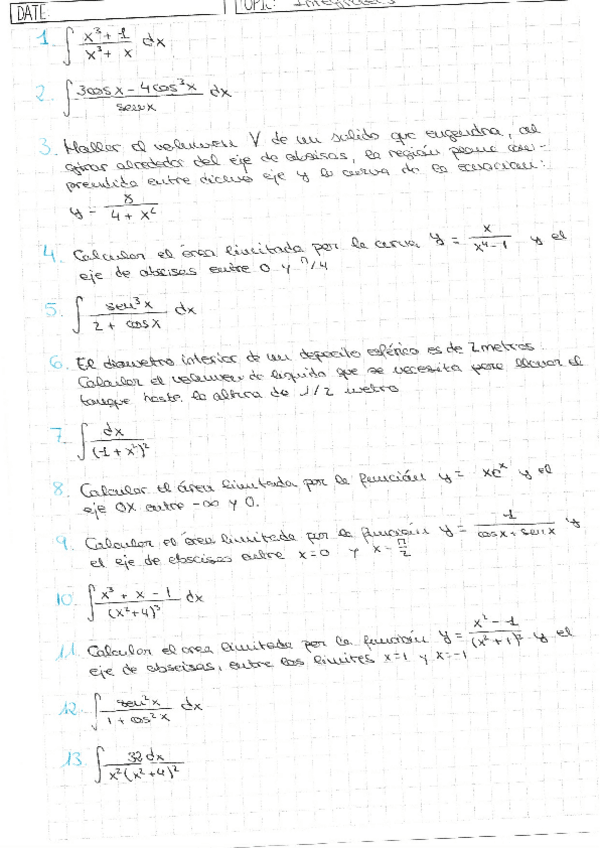 DATE: TOPIC: Integrales
1. ∫ (x³ + 1)/(x³ + x) dx
2. ∫ (3cos x - 4cos³x)/(sen x) dx
3. Hallar el volumen V de un solido que engendra, al
girar alrededor del eje de absisas, la región plana com-
prendida entre dicho eje y la curva de la ecuacion:
y = x/(4 + x²)
4. Calcular el área limitada por la curva y = x/(x⁴-1) y el
eje de abscisas entre 0 y π/4
5. ∫ (sen³x)/(2 + cos x) dx
6. El diametro interior de un deposito esférico es de 2 metros.
Calcular el volumen de liquido que se necesita para llenar el
tanque hasta la altura de 1/2 metro
7. ∫ dx/(1 + x²)²
8. Calcular el área limitada por la función y = xeˣ y el
eje OX entre -∞ y 0.
9. Calcular el área limitada por la función y = 1/(cos x + sen x) y
el eje de abscisas entre x=0 y x = π/2
10. ∫ (x³ + x - 1)/(x²+4)³ dx
11. Calcular el area limitada por la función y = (x² - 1)/(x² + 1)² y el
eje de abscisas, entre los limites x=1 y x=-1
12. ∫ (sen²x)/(1 + cos²x) dx
13. ∫ 32dx/(x²(x²+4)²)